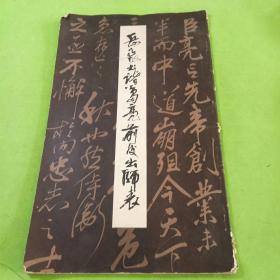 臣亮言先帝創業未
半而中道崩殂今天下
危
急存亡之秋也然侍衛
之臣不懈
忠志之士
岳飛書諸葛亮前後出師表